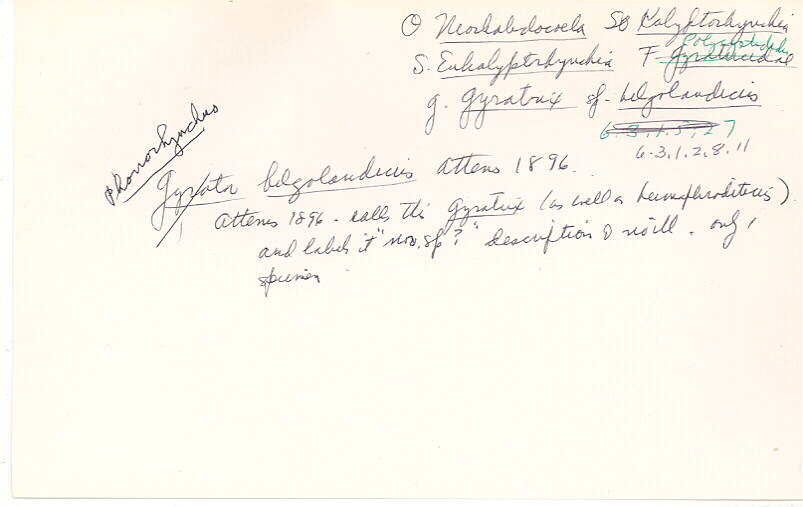 O Neorhabdocoela SO Kalyptorhynchia
Polycystididae
S. Eukalyptorhynchia F. Gyratricidae
g. Gyratrix sp. helgolandicus
6.3.1.5.27
6.3.1.2.8.11
Phonorhynchus
Gyrator helgolandicus Attems 1896.
Attems 1896 - calls this Gyratrix (as well as hermaphroditicus)
and labels it "nov. sp?" description & no ill. - only 1
specimen